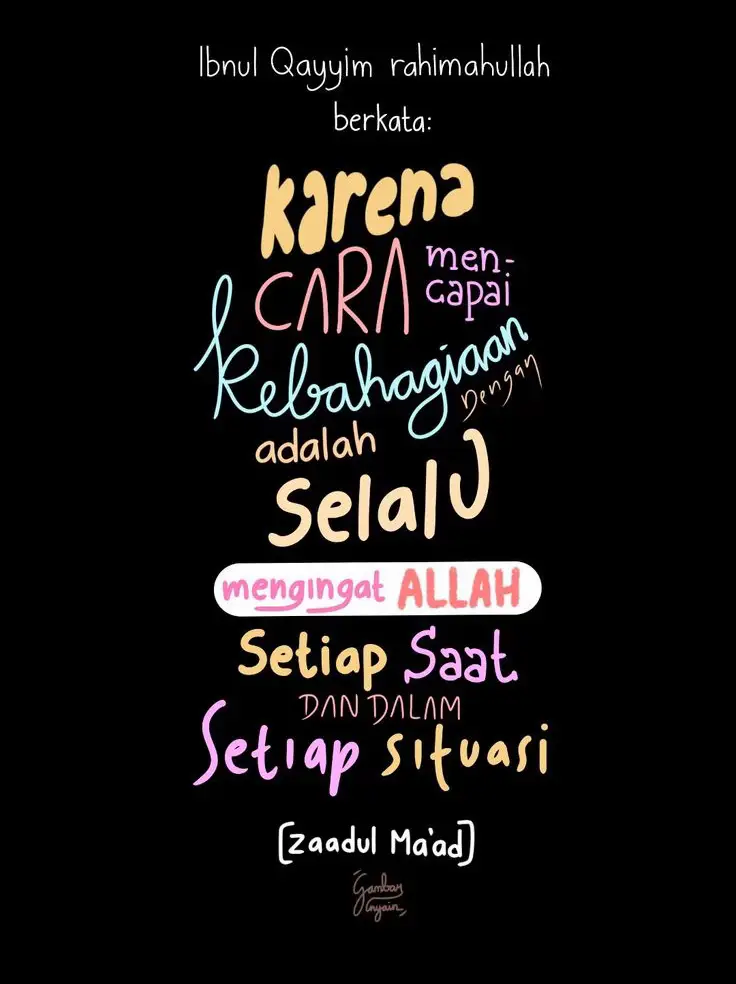 Ibnul Qayyim rahimahullah
berkata:
karena
CARA men-
capai
Kebahagiaan
adalah Dengan
Selalu
mengingat ALLAH
Setiap Saat
DAN DALAM
Setiap situasi
[Zaadul Ma'ad]
Gambar